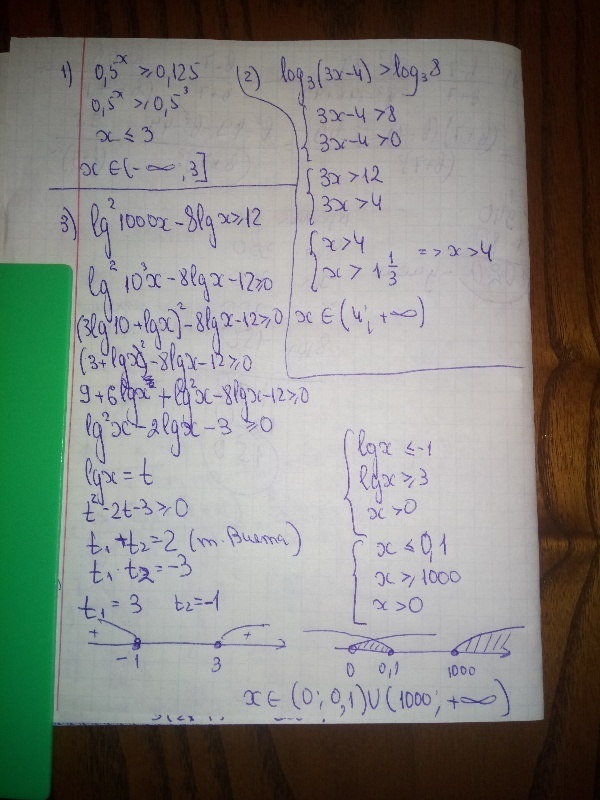 1) 0,5^x ≥ 0,125
0,5^x ≥ 0,5^3
x ≤ 3
x ∈ (-∞; 3]
2) log₃(3x-4) > log₃8
{ 3x-4 > 8
3x-4 > 0
{ 3x > 12
3x > 4
{ x > 4
x > 1 1/3 => x > 4
x ∈ (4; +∞)
3) lg² 1000x - 8lgx ≥ 12
lg² 10³x - 8lgx - 12 ≥ 0
(3lg10 + lgx)² - 8lgx - 12 ≥ 0
(3 + lgx)² - 8lgx - 12 ≥ 0
9 + 6lgx + lg²x - 8lgx - 12 ≥ 0
lg²x - 2lgx - 3 ≥ 0
lgx = t
t² - 2t - 3 ≥ 0
t₁ + t₂ = 2 (т. Виета)
t₁ · t₂ = -3
t₁ = 3 t₂ = -1
+ +
-1 3
{ lgx ≤ -1
lgx ≥ 3
x > 0
{ x ≤ 0,1
x ≥ 1000
x > 0
0 0,1 1000
x ∈ (0; 0,1) ∪ (1000; +∞)